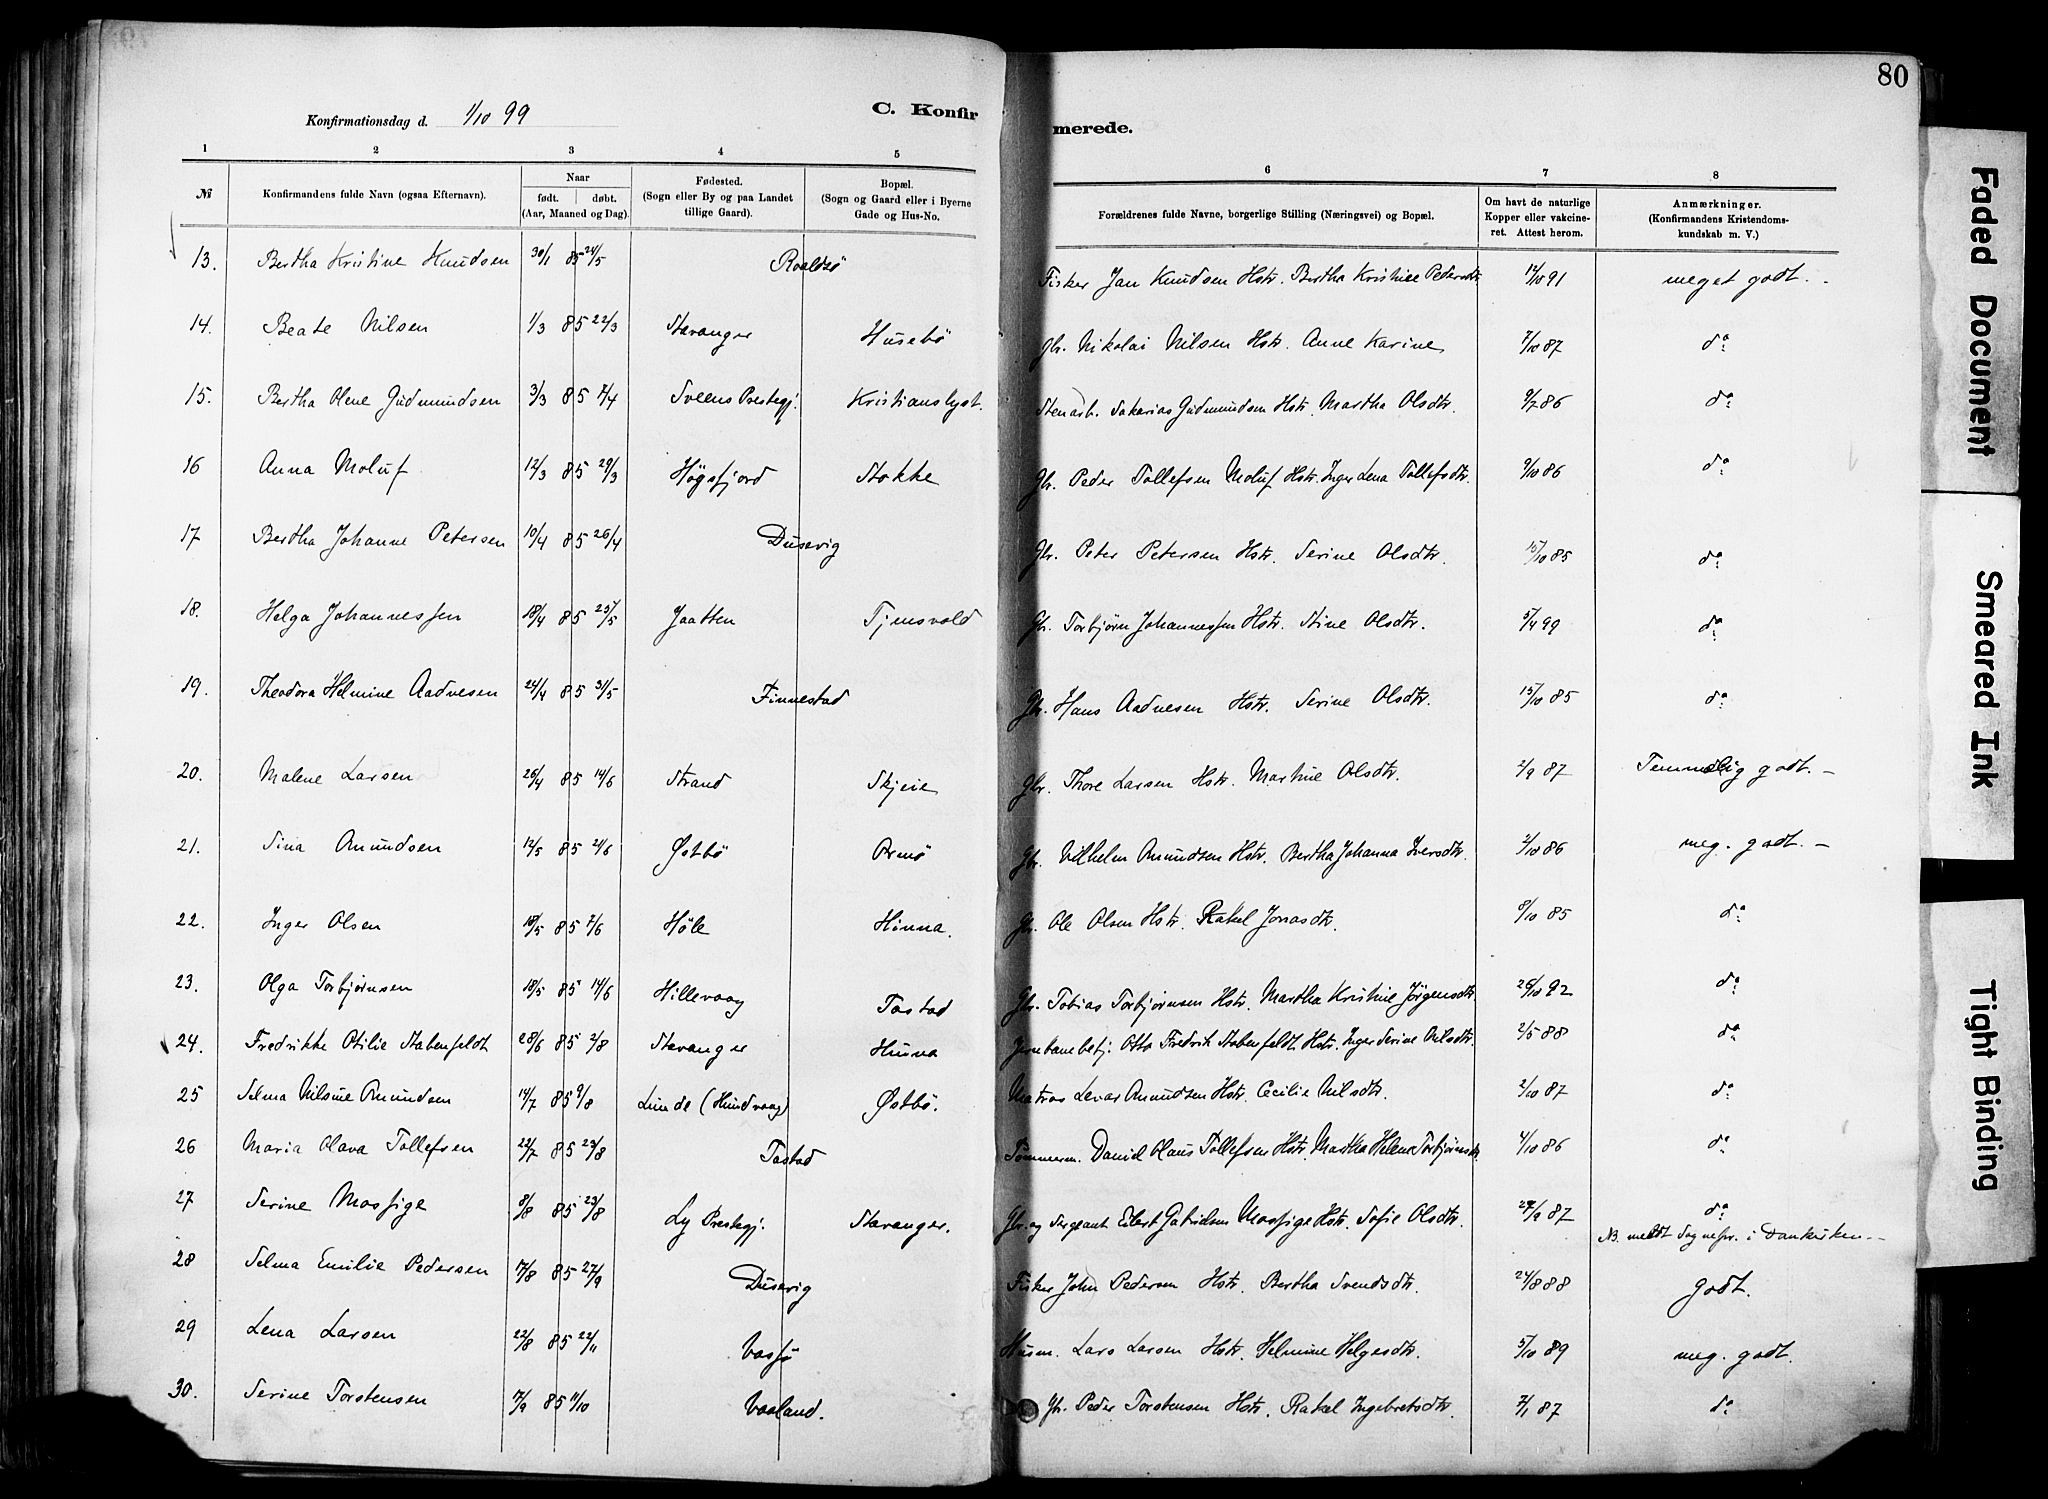 80
Konfirmationsdag d. 1/10 99
C. Konfirmerede.
1 2 3 4 5 6 7 8
№ Konfirmandens fulde Navn (ogsaa Efternavn). Naar født. døbt. (Aar, Maaned og Dag). Fødested. (Sogn eller By og paa Landet tillige Gaard). Bopæl. (Sogn og Gaard eller i Byerne Gade og Hus-No. Forældrenes fulde Navne, borgerlige Stilling (Næringsvei) og Bopæl. Om havt de naturlige Kopper eller vakcineret. Attest herom. Anmærkninger. (Konfirmandens Kristendomskundskab m. V.)
13. Bertha Kristine Knudsen 30/1 85 24/5 Roaldsö Fisker Jan Knudsen Hstr. Bertha Kristine Pedersdtr 14/10 91 meget godt.
14. Beate Nilsen 1/3 85 22/3 Stavanger Husebö Gbr. Nikolai Nilsen Hstr. Anne Karine 7/10 87 do
15. Bertha Olene Gudmundsen 3/3 85 7/4 Sveens Prestegj. Kristianslyst. Stenarb. Sakarias Gudmundsen Hstr. Martha Olsdtr. 9/7 86 do
16 Anna Moluf 12/3 85 29/3 Högsfjord Stokke Gbr. Peder Tollefsen Moluf Hstr. Inger Lena Tollefsdtr. 9/10 86 do
17 Bertha Johanne Petersen 10/4 85 26/4 Dusevig Gbr. Peter Petersen Hstr. Serine Olsdtr. 15/10 85 do
18. Helga Johannessen 18/4 85 25/5 Jaatten Tjensvold Gbr. Torbjörn Johannessen Hstr. Stine Olsdtr. 5/4 99 do
19. Theodora Helmine Aadnesen 24/4 85 31/5 Finnestad Gbr. Hans Aadnesen Hstr. Serine Olsdtr. 15/10 85 do
20. Malene Larsen 26/4 85 14/6 Strand Skjeie Gbr. Thore Larsen Hstr. Martine Olsdtr. 2/9 87 Temmelig godt. –
21. Sina Amundsen 12/5 85 21/6 Østbö Ormö Gbr. Vilhelm Amundsen Hstr. Bertha Johanna Iversdtr. 2/10 86 meg. godt. –
22. Inger Olsen 18/5 85 7/6 Höle Hinna. Gbr. Ole Olsen Hstr. Rakel Jonasdtr. 8/10 85 do
23. Olga Torbjörnsen 18/5 85 14/6 Hillevaag Tastad Gbr. Tobias Torbjörnsen Hstr. Martha Kristine Jörgensdtr. 26/10 92 do
24. Fredrikke Otilie Stabenfeldt 28/6 85 2/8 Stavanger Hinna Jernbanebetj. Otto Fredrik Stabenfeldt Hstr. Inger Serine Nilsdtr. 2/5 88 do
25 Selma Nilsine Amundsen 14/7 85 9/8 Lunde (Hundvaag) Østbö. Matros Levar Amundsen Hstr. Cecilie Nilsdtr. 2/10 87 do
26 Maria Olava Tollefsen 22/7 85 23/8 Tastad Tömmerm. Daniel Olaus Tollefsen Hstr. Martha Helene Torbjörnsdtr. 4/10 86 do
27 Serine Mossige 8/8 85 23/8 Ly Prestegj. Stavanger. Gbr. og Sergeant Eilert Gabrielsen Mossige Hstr. Sofie Olsdtr. 27/9 87 do
NB. meldt Sognepr. i Domkirken –
28 Selma Emilie Pedersen 17/8 85 27/9 Dusevig Fisker John Pedersen Hstr. Bertha Svendsdtr. 24/8 88 Godt.
29 Lena Larsen 22/8 85 22/11 Vassö Husm. Lars Larsen Hstr. Helmine Helgesdtr. 5/10 89 meg. godt.
30. Serine Torstensen 17/9 85 11/10 Vaaland. Gbr. Peder Torstensen Hstr. Rakel Ingebretsdtr. 7/1 87 do
Faded Document
Smeared Ink
Tight Binding